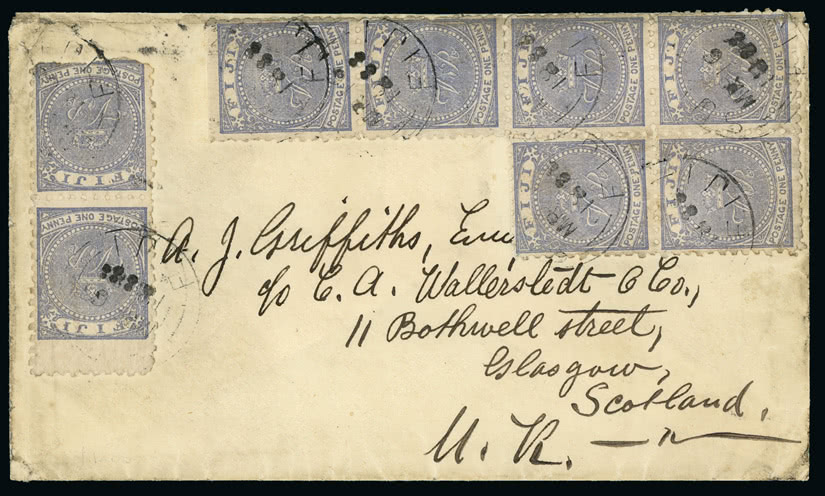 POSTAGE ONE PENNY
FIJI
POSTAGE ONE PENNY
FIJI
FIJI
POSTAGE ONE PENNY
FIJI
POSTAGE ONE PENNY
FIJI
POSTAGE ONE PENNY
FIJI
POSTAGE ONE PENNY
FIJI
POSTAGE ONE PENNY
FIJI
POSTAGE ONE PENNY
A. J. Griffiths,
c/o E. A. Wallerstedt & Co.,
11 Bothwell street,
Glasgow,
Scotland.
U. K.